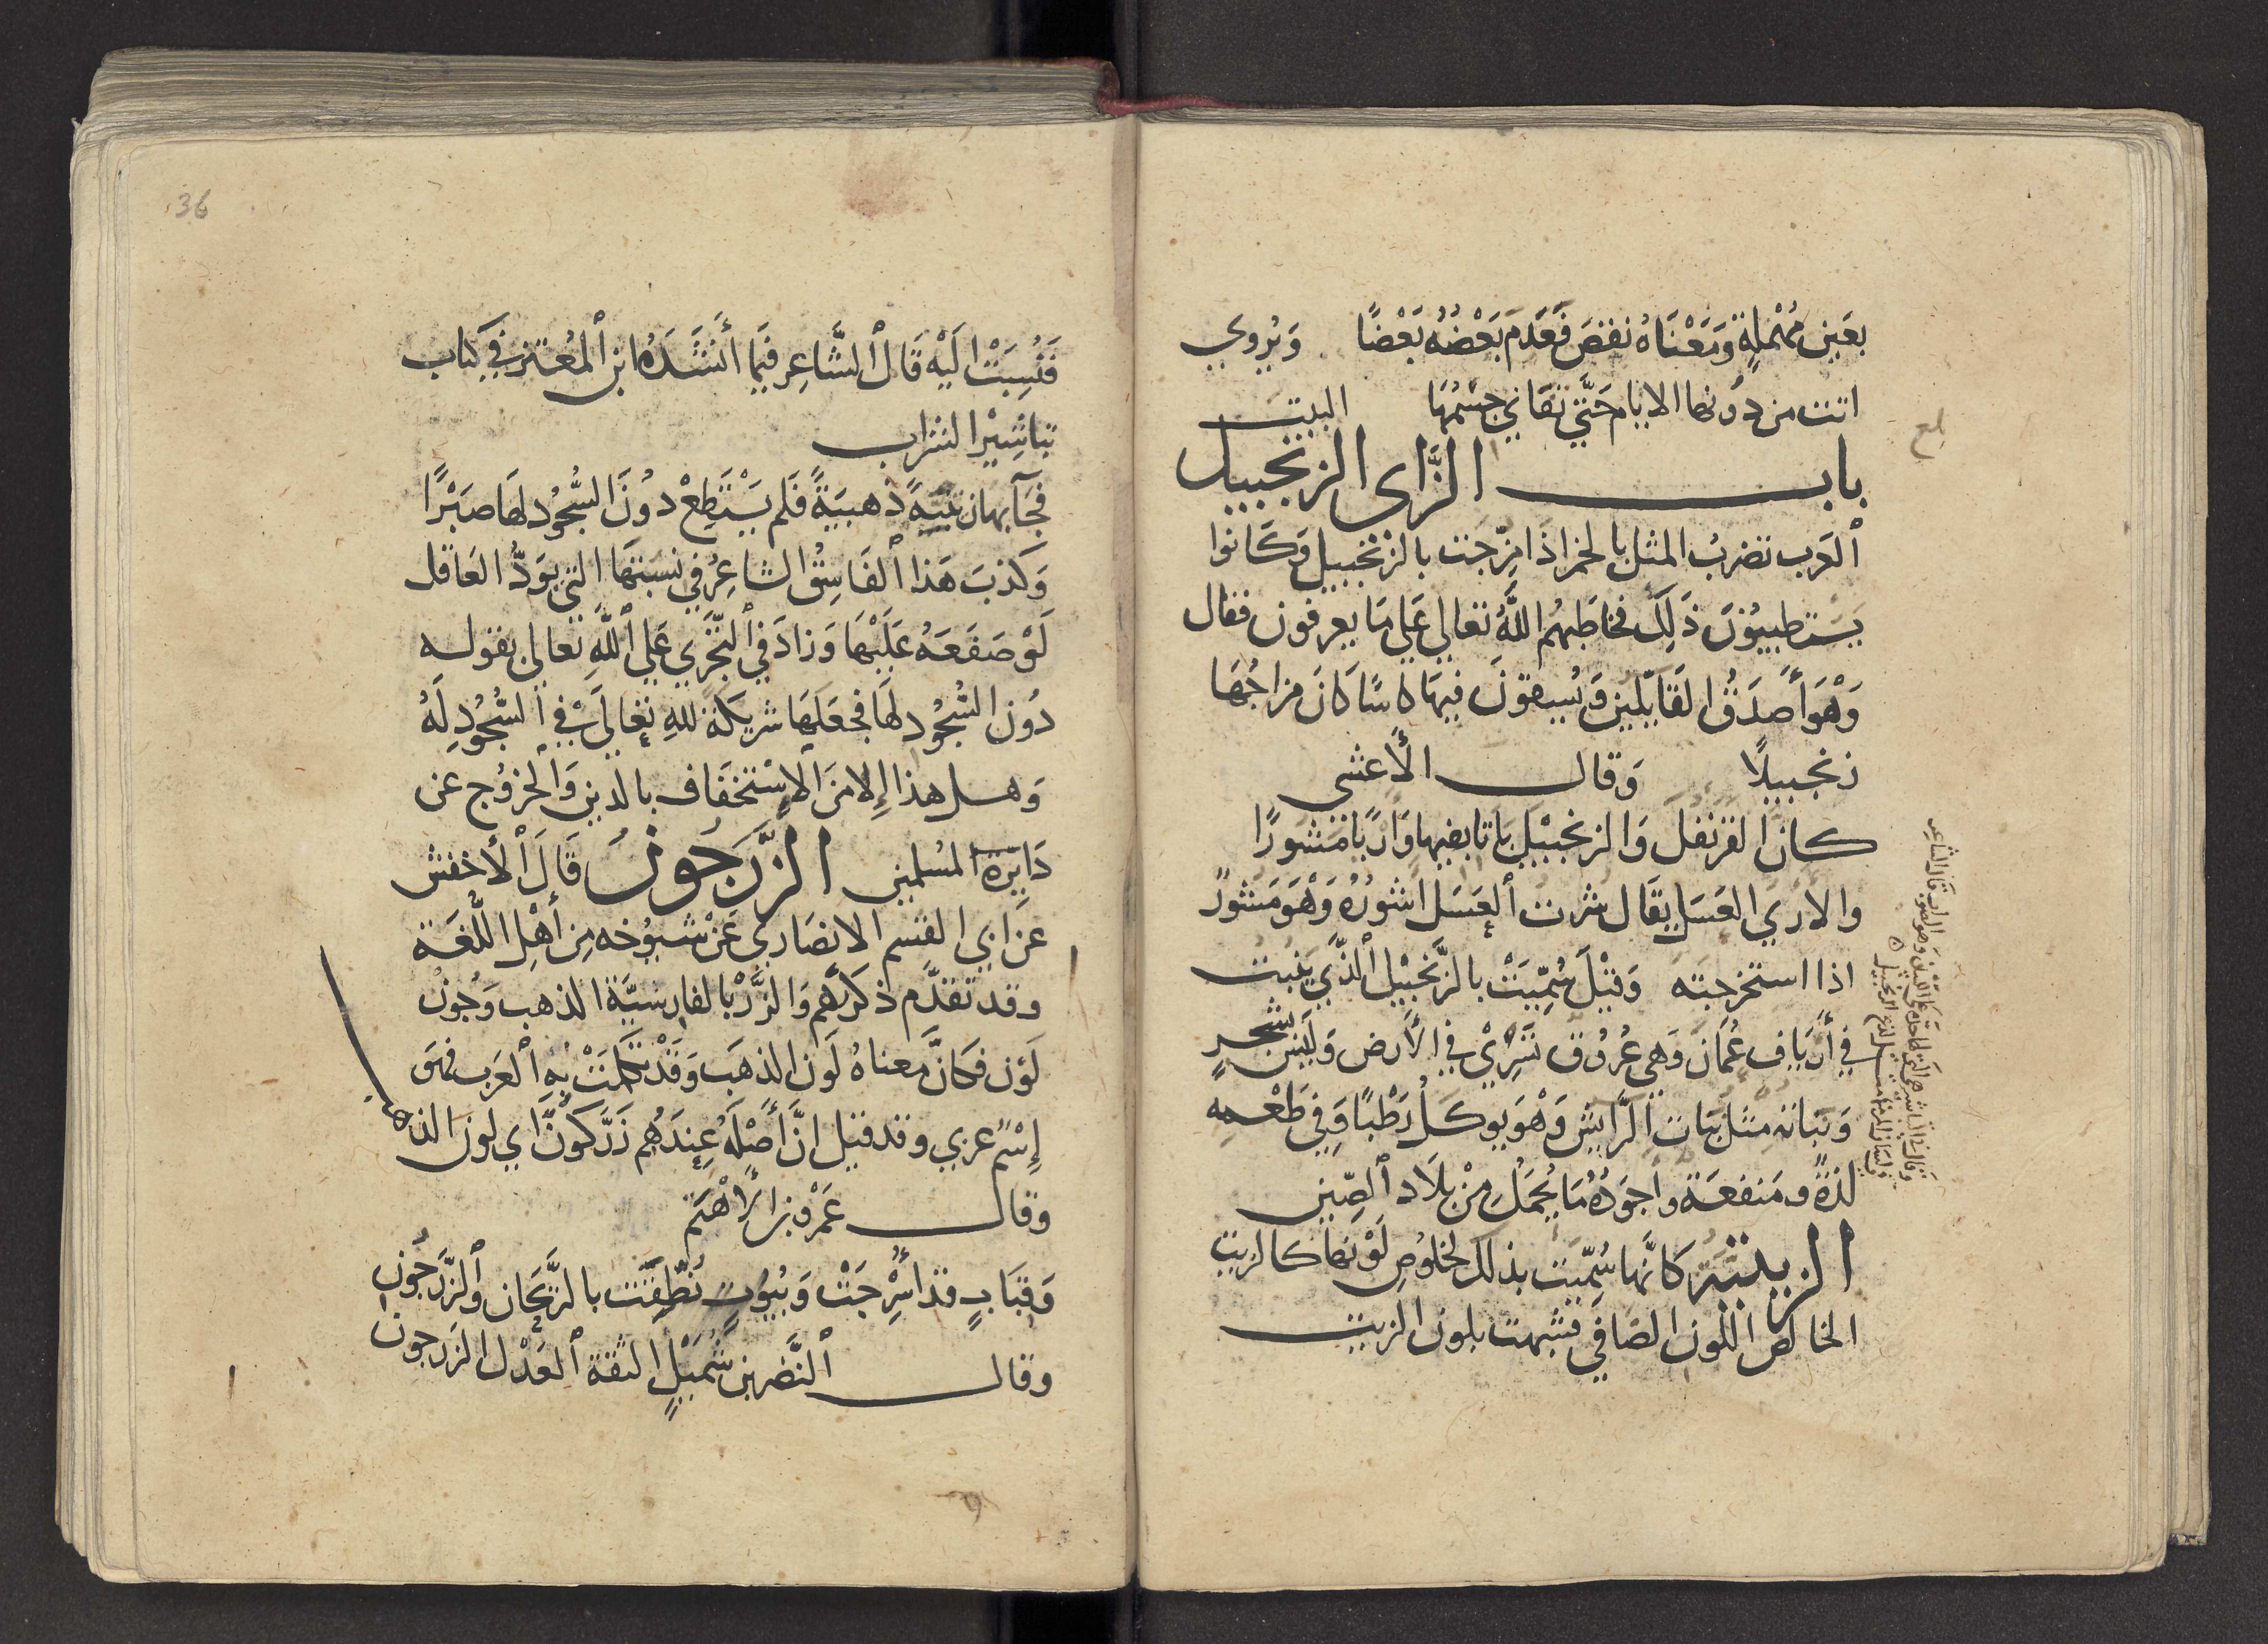 بعَين مُهْمَلةٍ وَمَعْنَاهُ نقصَ فَعَدَم بَعْضُهُ بَعْضًا وَيُروي
اتت من دُونها الايام حَتَّي تفاني جسْمُهَا البيت
باب الزَّاى الزنجبيل
ٱلعَرب تضربُ المثل بالخمر اذا مزِّجت بالزنْجَبيل وَكَانوا
يَسْتطيبُوْنَ ذَلِكَ فخاطَبَهُم اللَّهُ تعالي عَلي مَا يعرفون فقال
وَهْوَ أَصدَقُ القَايلين وَيُسقونَ فيهَا كاسًا كَانَ مزاجُهَا
زنجبيلًا وَقال الأعشي
كان القرنفل وَالزنجبيْل باتا بفيها وَاريًا مَشورًا
والاري العَسَل يقَال شُرت ٱلعَسَل اشورُهُ وَهْوَ مَشورٌ
اذا استخرجته وَقيْلَ سُمِّيَتْ بالزَّنْجَبيْل ٱلذَّي يَنبت
في أريَاف عُمَان وَهي عُرُوق تَسْرِيْ في الأرض وَليَسَ بشجرٍ
وَنباته مثل نبَات الرَّاسَن وَهْوَ يوكلُ رَطْبًا وَفي طَعْمه
لذةٌ وَمَنفعَة وَاجوَدُهُ مَا يُحمَلُ مِنْ بلَاد ٱلصِّين
الزيتيَّة كَانَّها سُمِّيَت بذلك لخلوُصِ لَوْنها كالزيت
الخالص اللون الصَافي فشبهت بلون الزيت
36
فَنُسِبَتْ اليْه قَال ٱلشَّاعِر فيمَا أنشَدَهُ ابن ٱلمُعتز في كتاب
تباشِيْر الشراب
فجَآ بهازيتيّةً ذهبيَةً فَلم يَسْتَطِعْ دوُنَ السُّجُود لهَا صَبْرًا
وَكَذبَ هَذا ٱلفَاسِقُ الشاعِرُ في نسبَتهَا التي يوَدُّ العَاقل
لَوْ صَفَعَهُ عَلَيْهَا وَزادَ في ٱلتَّجَرِّي عَلي ٱللَّهِ تَعالي بقوله
دُون السُّجُود لهَا فجعَلهَا شريكَةً للهِ تعَالَيْ في السُّجُود لَهُ
وَهل هذا إلا منَ الإسْتخفَاف بالدين وَالخرُوج عَن
دَايرَة المسْلمين الزَّرَجَونُ قَالَ ٱلأخفش
عَن ابي القسم الانصَاري عَنْ شيُوْخه مِن أهْل اللُّغَة
وقد تقدَّم ذكرُهم وَالزَّرْ بالفارسيَّة الذهب وَجُونْ
لَوْن فكَانَّ معناهُ لَون الذهَب وَقَدْ تكلَّمتْ بهِ ٱلعَرب فهوَ
إسْمٌ عربي وقد قيل انَّ أصْلَهُ عِندَهُم زَرَّكونْ اي لون الذه
وَقال عَمْرو بن الأهْتَم
وَقِبَابٍ قد أُسْرِجَتْ وَبيُوتٍ نُطِّقَت بالرَّيْحَان وَٱلزَّرَجُون
وَقال ٱلنَّضر بن شُمَيْلٍ الثقة ٱلعَدْل الزرجون